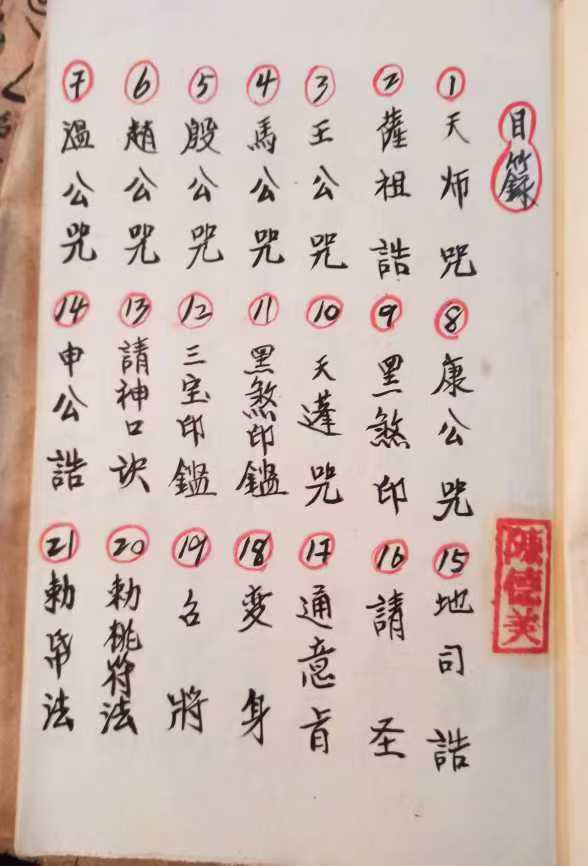 目籙
①天师咒
②薩祖誥
③王公咒
④馬公咒
⑤殷公咒
⑥趙公咒
⑦溫公咒
⑧康公咒
⑨黑煞印
⑩天蓬咒
⑪黑煞印鑑
⑫三宝印鑑
⑬請神口诀
⑭申公誥
⑮地司誥
⑯請圣
⑰通意旨
⑱变身
⑲召將
⑳勅桃符法
㉑勅帛法
陳德美